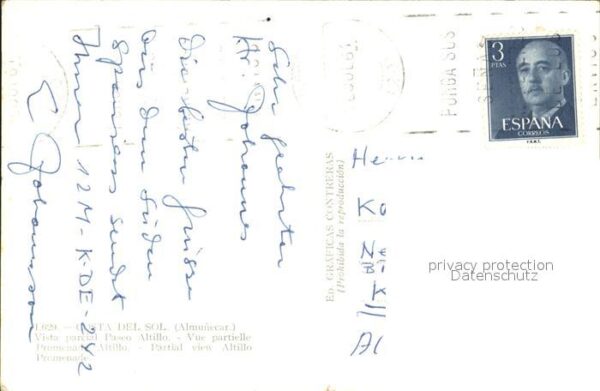 Sehr geehrter
Hr. Johannes
Die besten Grüsse
aus dem Süden
Spaniens sendet
Ihnen 12M-K-DE-242
E Johannsson
COSTA DEL SOL. (Almuñecar.)
Vista parcial Paseo Altillo. - Vue partielle
Promenade Altillo. - Partial view Altillo
Promenade
ED. GRÁFICAS CONTRERAS
(Prohibida la reproducción)
PONGA SUS
3
PTAS
ESPAÑA
CORREOS
F.N.M.T.
Herrn
Ko
privacy protection
Datenschutz